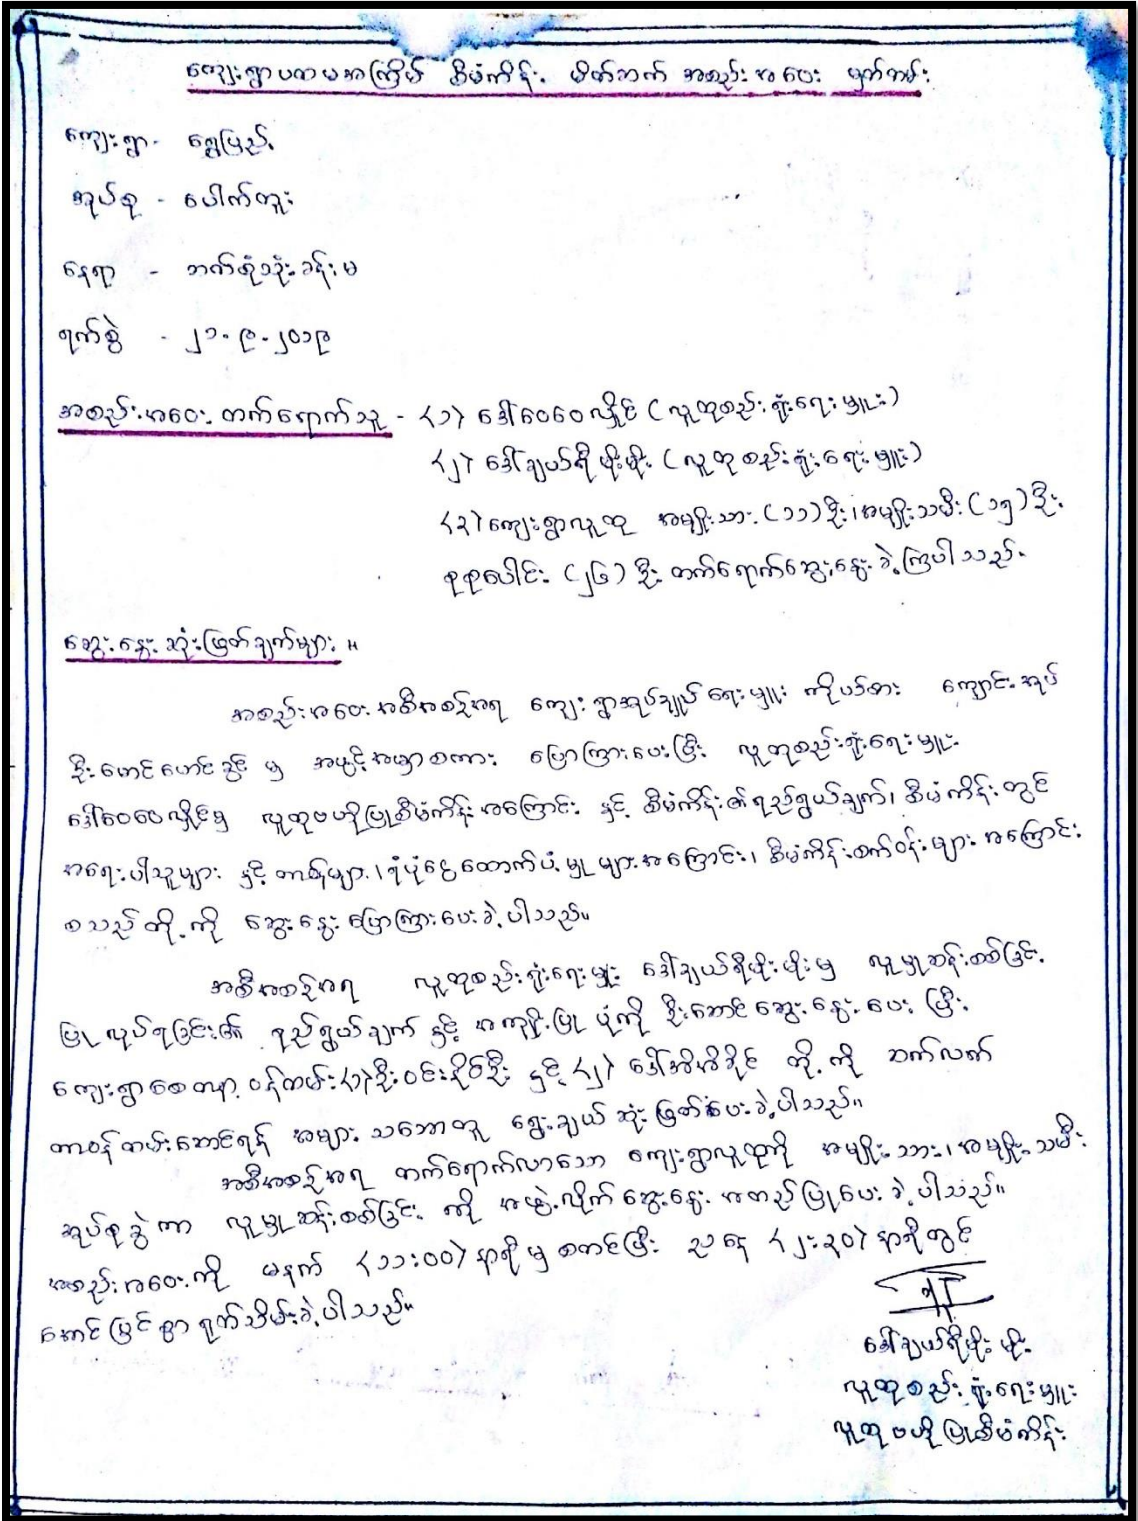 ကျေးရွာပထမအကြိမ် စီမံကိန်း မိတ်ဆက် အစည်းအဝေး မှတ်တမ်း
ကျေးရွာ - ရွှေပြည်
အုပ်စု - ပေါက်တူး
နေရာ - ဘက်စုံသုံးခန်းမ
ရက်စွဲ - ၂၁-၉-၂၀၁၉
အစည်းအဝေး တက်ရောက်သူ - (၁) ဒေါ်ဝေဝေလှိုင် (လူထုစည်းရုံးရေးမှူး)
(၂) ဒေါ်ချယ်ရီမိုးမိုး (လူထုစည်းရုံးရေးမှူး)
(၃) ကျေးရွာလူထု အမျိုးသား (၁၁) ဦး၊ အမျိုးသမီး (၁၅) ဦး
စုစုပေါင်း (၂၆) ဦး တက်ရောက်ဆွေးနွေးခဲ့ကြပါသည်။
ဆွေးနွေးဆုံးဖြတ်ချက်များ ။
အစည်းအဝေးအစီအစဉ်အရ ကျေးရွာအုပ်ချုပ်ရေးမှူး ကိုယ်စား ကျောင်းအုပ်
ဦး မှ အဖွင့်အမှာစကား ပြောကြားပေးပြီး လူထုစည်းရုံးရေးမှူး
ဒေါ်ဝေဝေလှိုင်မှ လူထုဗဟိုပြုစီမံကိန်းအကြောင်း နှင့် စီမံကိန်း၏ရည်ရွယ်ချက်၊ စီမံကိန်းတွင်
အရေးပါသူများ နှင့် တာဝန်များ၊ ရံပုံငွေထောက်ပံ့မှုများအကြောင်း၊ စီမံကိန်းစက်ဝန်းများ အကြောင်း
စသည်တို့ကို ဆွေးနွေးပြောကြားပေးခဲ့ပါသည်။
အစီအစဉ်အရ လူထုစည်းရုံးရေးမှူး ဒေါ်ချယ်ရီမိုးမိုးမှ လူမှုဆန်းစစ်ခြင်း
ပြုလုပ်ရခြင်း၏ ရည်ရွယ်ချက် နှင့် အကျိုးပြုပုံကို ဦးဆောင်ဆွေးနွေးပေးပြီး
ကျေးရွာစေတနာ့ဝန်ထမ်း (၁) ဦးဝင်းနိုင်ဦး နှင့် (၂) ဒေါ်အိအိခိုင် တို့ကို ဆက်လက်
တာဝန်ထမ်းဆောင်ရန် အများသဘောတူ ရွေးချယ်ဆုံးဖြတ်ပေးခဲ့ပါသည်။
အစီအစဉ်အရ တက်ရောက်လာသော ကျေးရွာလူထုကို အမျိုးသား၊ အမျိုးသမီး
အုပ်စုခွဲကာ လူမှုဆန်းစစ်ခြင်း ကို အဖွဲ့လိုက်ဆွေးနွေး အတည်ပြုပေးခဲ့ပါသည်။
အစည်းအဝေးကို မနက် (၁၁:၀၀) နာရီမှ စတင်ပြီး ညနေ (၂:၃၀) နာရီတွင်
အောင်မြင်စွာရုတ်သိမ်းခဲ့ပါသည်။
ဒေါ်ချယ်ရီမိုးမိုး
လူထုစည်းရုံးရေးမှူး
လူထုဗဟိုပြုစီမံကိန်း